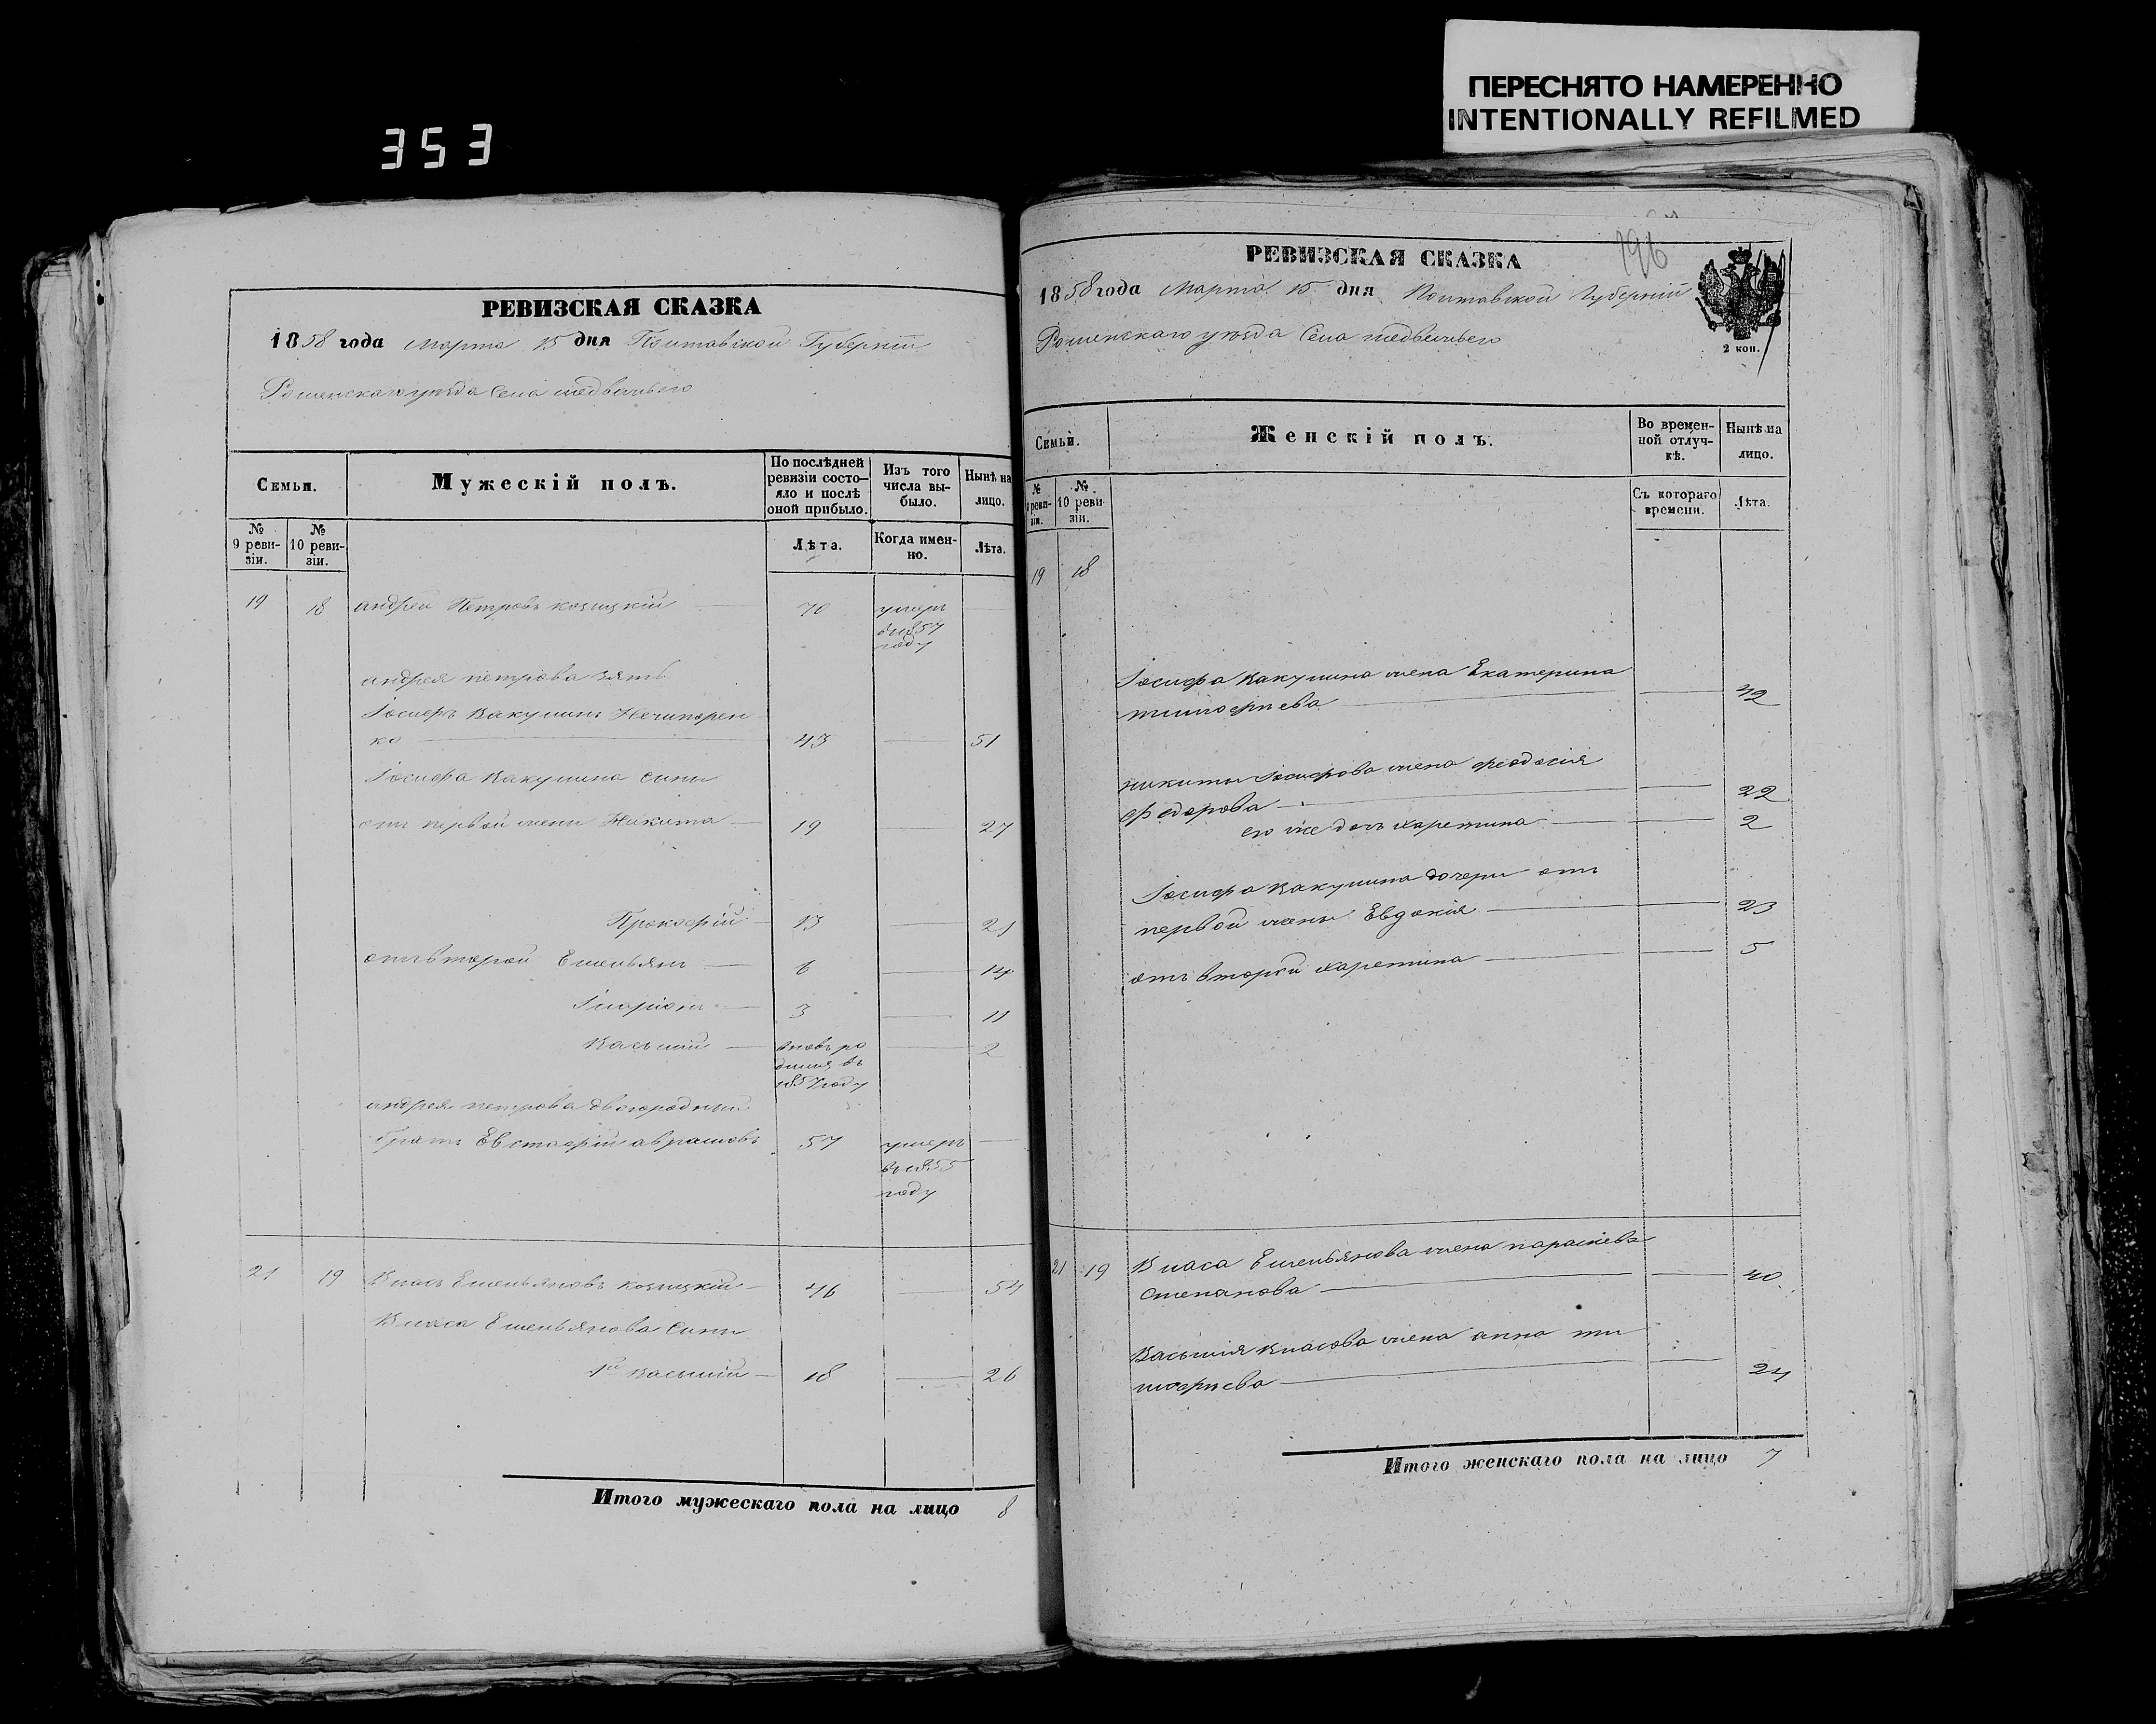 ПЕРЕСНЯТО НАМЕРЕННО
INTENTIONALLY REFILMED
353
РЕВИЗСКАЯ СКАЗКА
1858 года Марта 15 дня Полтавской Губерніи
Роменскаго уѣзда Села медвежьего
Семьи.
Мужескій полъ.
По послѣдней ревизіи состо-
яло и послѣ
оной прибыло.
Изъ того
числа вы-
было.
Нынѣ на
лицо.
№
9 реви-
зіи.
№
10 реви-
зіи.
Лѣта.
Когда имен-
но.
Лѣта.
19 18 андрей Петровъ козицкій 70 умеръ
въ 1857
году
андрея петрова зять
Іосифъ Вакулинъ Нечипорен
ко 43 51
Іосифа Вакулина сыны
отъ первой жены Никита 19 27
Прокофій 13 21
отъ второй Емельянъ 6 14
Іларіонъ 3 11
Василій вновь ро 2
дился въ
1857 году
андрея петрова двоюродный
братъ Евстафій авраамовъ 57 умеръ
въ 1855
году
21 19 Власъ Емельяновъ козицкій 46 54
Власа Емельянова сыны
1й Василій 18 26
Итого мужескаго пола на лицо 8
196
РЕВИЗСКАЯ СКАЗКА
1858 года Марта 15 дня Полтавской Губерніи
Роменскаго уѣзда Села медвежьего
2 коп.
Семьи.
Женскій полъ.
Во времен-
ной отлуч-
кѣ.
Нынѣ на
лицо.
№
реви-
зіи.
№
10 реви-
зіи.
Съ котораго
времени.
Лѣта.
19 18
Іосифа Вакулина жена Екатерина
тимофѣева 42
никиты Іосифова жена феодосія
федорова 22
его же дочь харетина 2
Іосифа Вакулина дочери отъ
первой жены Евдокія 23
отъ второй харетина 5
21 19 Власа Емельянова жена параскева
степанова 40
Василія Власова жена анна ти
мофѣева 24
Итого женскаго пола на лицо 7